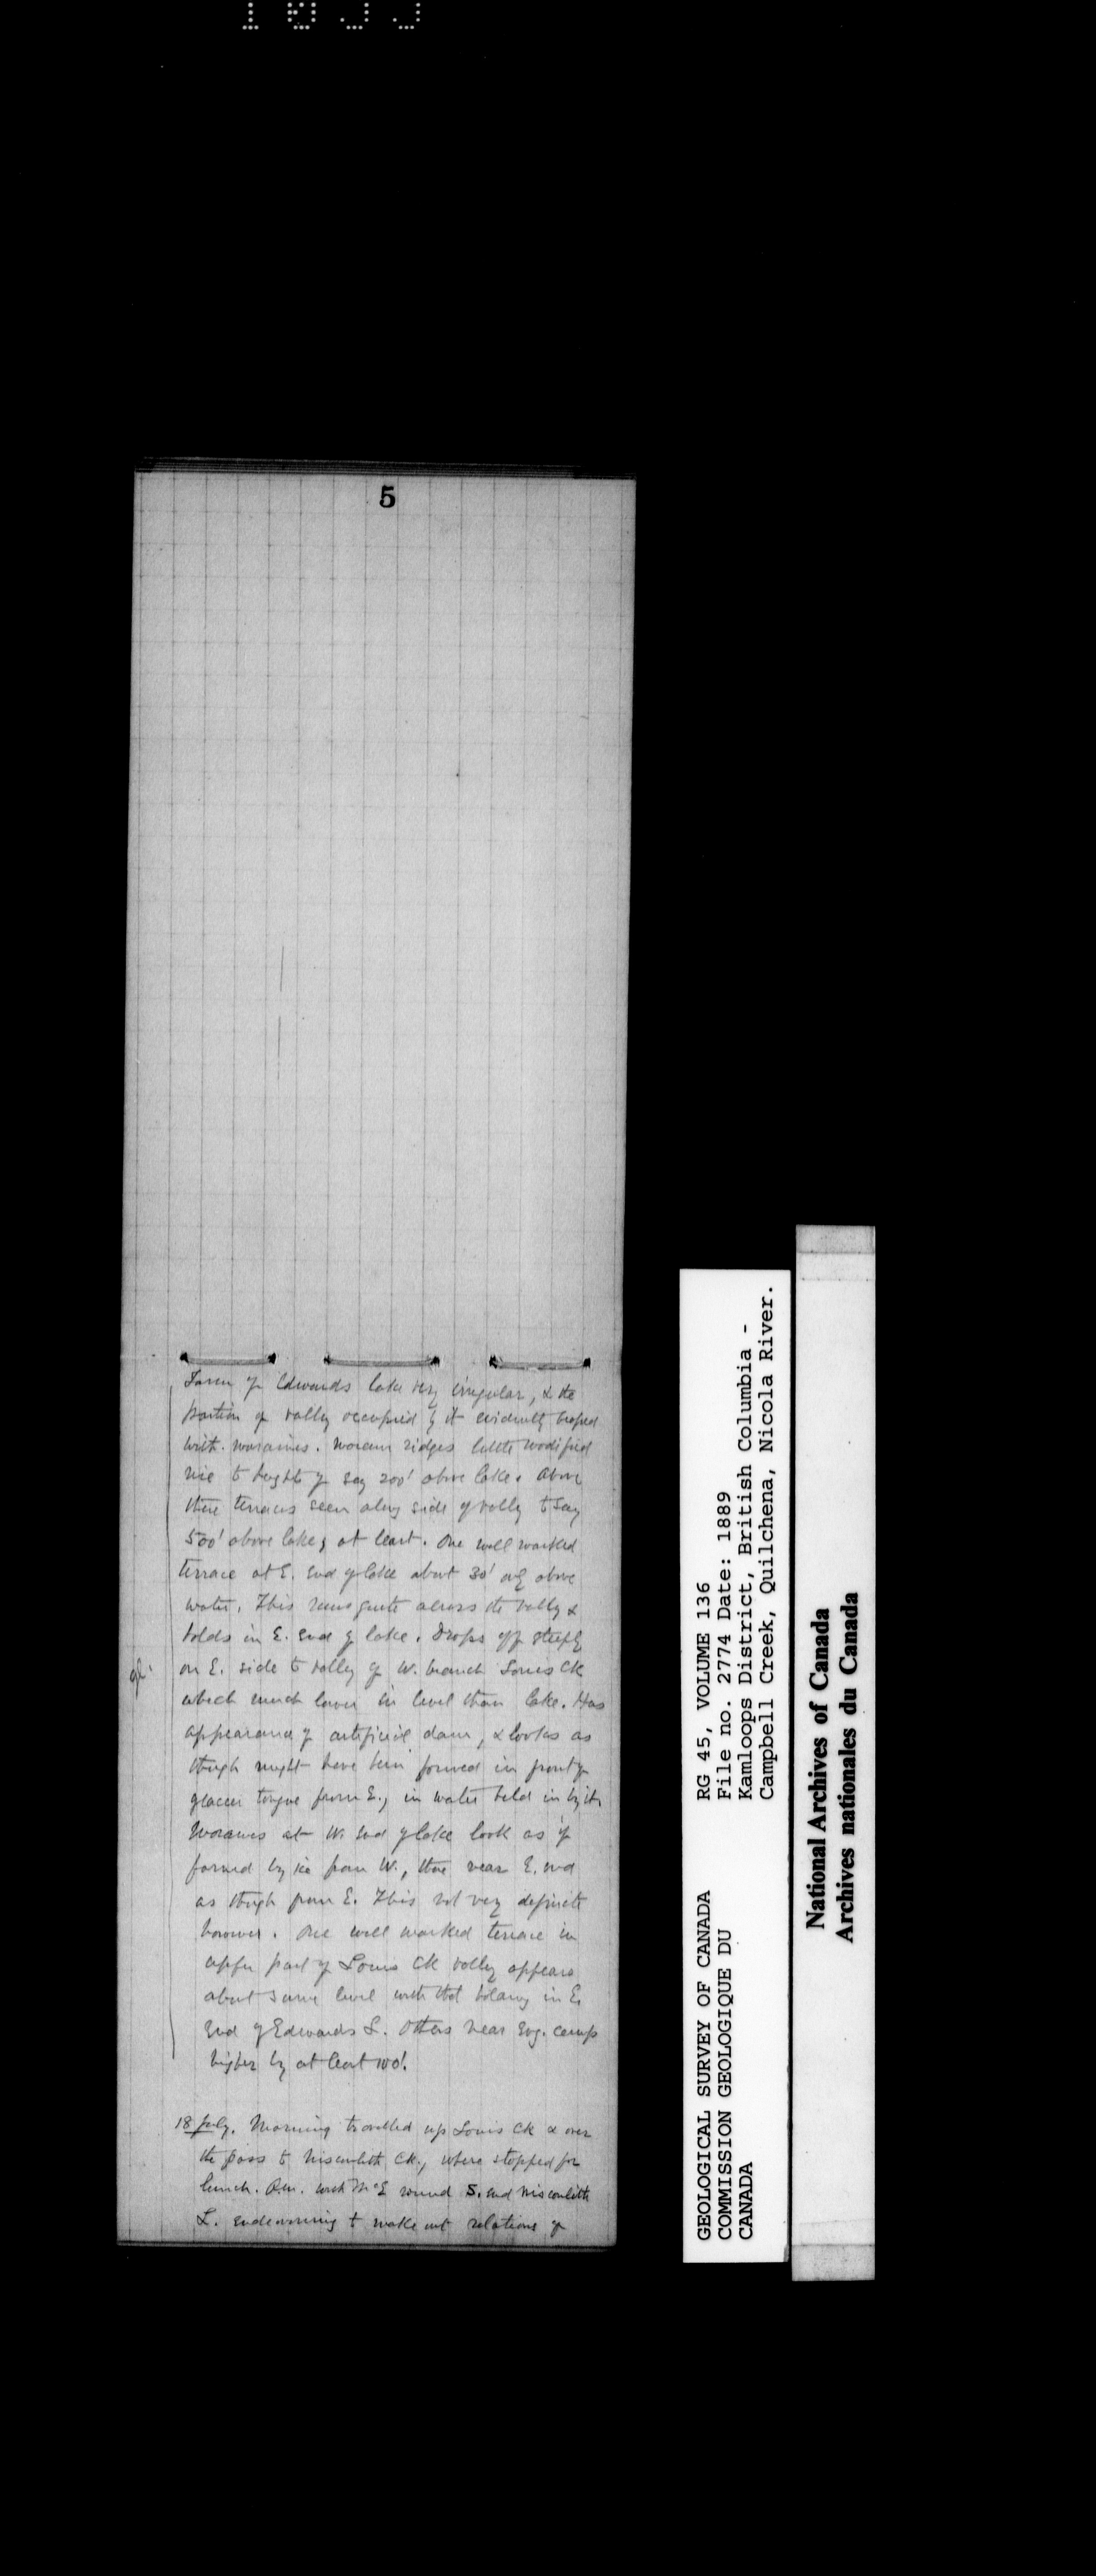 5
Form of Edwards lake very irregular, & the
portion of valley occupied by it evidently heaped
with moraines. Morain ridges little modified
rise to heights of say 200' above lake. Above
these terraces seen along side of valley to say
500' above lake, at least. One well marked
terrace at E. end of lake about 30' avg above
water. This runs quite across the valley &
holds in E. end of lake. Drops off steeply
gl.
on E. side to valley of W. branch Louis Ck
which much lower in level than lake. Has
appearance of artificial dam, & looks as
though might have been formed in front of
glacier tongue from E., in water held in by it.
Moraines at W. end of lake look as if
formed by ice from W., those near E. end
as though from E. This not very definite
however. One well marked terrace in
upper part of Louis Ck valley appears
about same level with that holding in E.
end of Edwards L. Others near evg. camp
higher by at least 100'.
18 July. Morning travelled up Louis Ck & over
the pass to Niskonlith Ck., where stopped for
lunch. P.m. with McE round S. end Niskonlith
L. endeavouring to make out relations of
GEOLOGICAL SURVEY OF CANADA
COMMISSION GEOLOGIQUE DU
CANADA
RG 45, VOLUME 136
File no. 2774 Date: 1889
Kamloops District, British Columbia -
Campbell Creek, Quilchena, Nicola River.
National Archives of Canada
Archives nationales du Canada